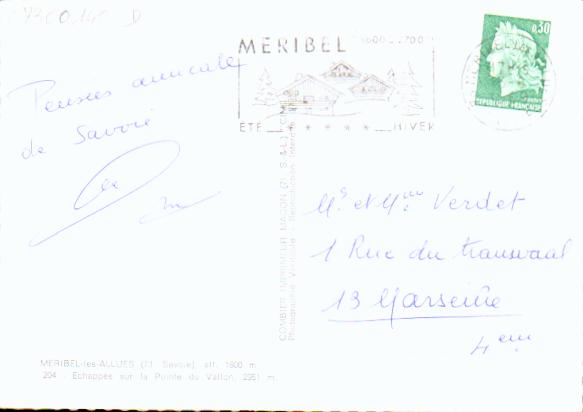 MERIBEL 1600-1700m
ÉTÉ HIVER
0,30
REPUBLIQUE FRANÇAISE
Pensées amicales
de Savoie
Mr et Mme Verdet
1 Rue du Transvaal
13 Marseille
4eme
COMBIER IMPRIMEUR MACON (71. S.-&-L.) "CIM"
Photographie Véritable - Reproduction Interdite
MERIBEL-les-ALLUES (73. Savoie), alt. 1600 m.
204 - Echappée sur la Pointe du Vallon, 2951 m.